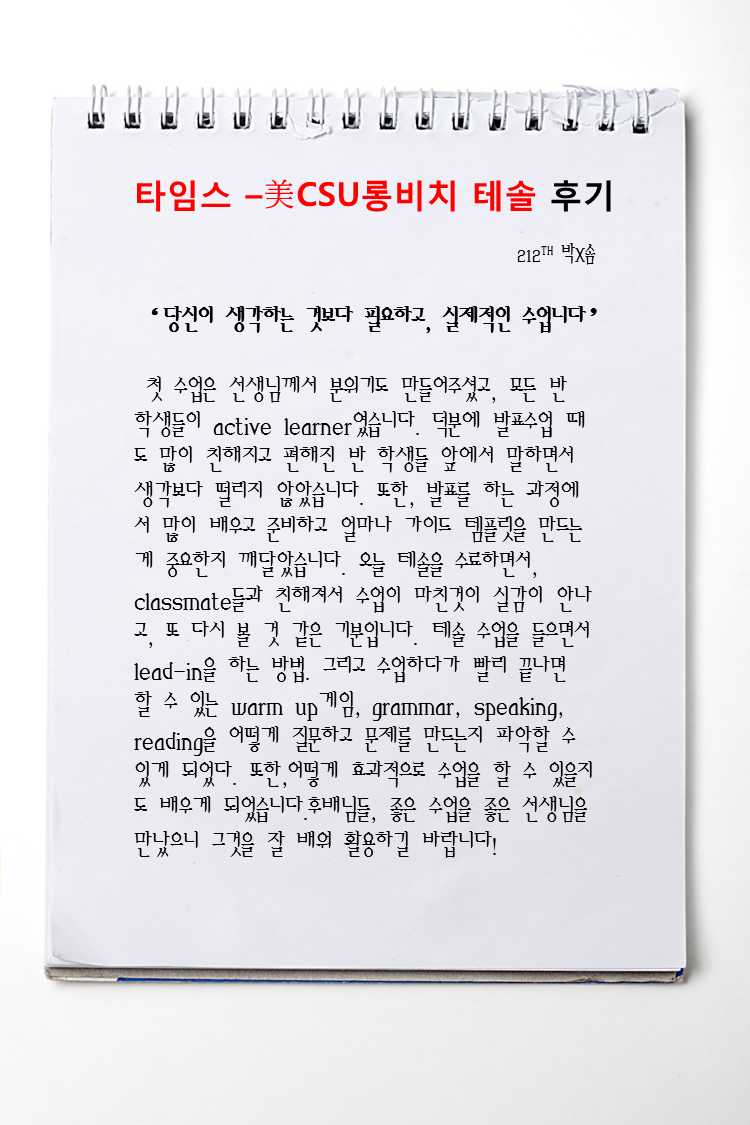 타임스 –美CSU롱비치 테솔 후기
212TH 박X솜
‘당신이 생각하는 것보다 필요하고, 실제적인 수업니다’
첫 수업은 선생님께서 분위기도 만들어주셨고, 모든 반
학생들이 active learner였습니다. 덕분에 발표수업 때
도 많이 친해지고 편해진 반 학생들 앞에서 말하면서
생각보다 떨리지 않았습니다. 또한, 발표를 하는 과정에
서 많이 배우고 준비하고 얼마나 가이드 템플릿을 만드는
게 중요한지 깨달았습니다. 오늘 테솔을 수료하면서,
classmate들과 친해져서 수업이 마친것이 실감이 안나
고, 또 다시 볼 것 같은 기분입니다. 테솔 수업을 들으면서
lead-in을 하는 방법. 그리고 수업하다가 빨리 끝나면
할 수 있는 warm up게임, grammar, speaking,
reading을 어떻게 질문하고 문제를 만드는지 파악할 수
있게 되었다. 또한,어떻게 효과적으로 수업을 할 수 있을지
도 배우게 되었습니다.후배님들, 좋은 수업을 좋은 선생님을
만났으니 그것을 잘 배워 활용하길 바랍니다!